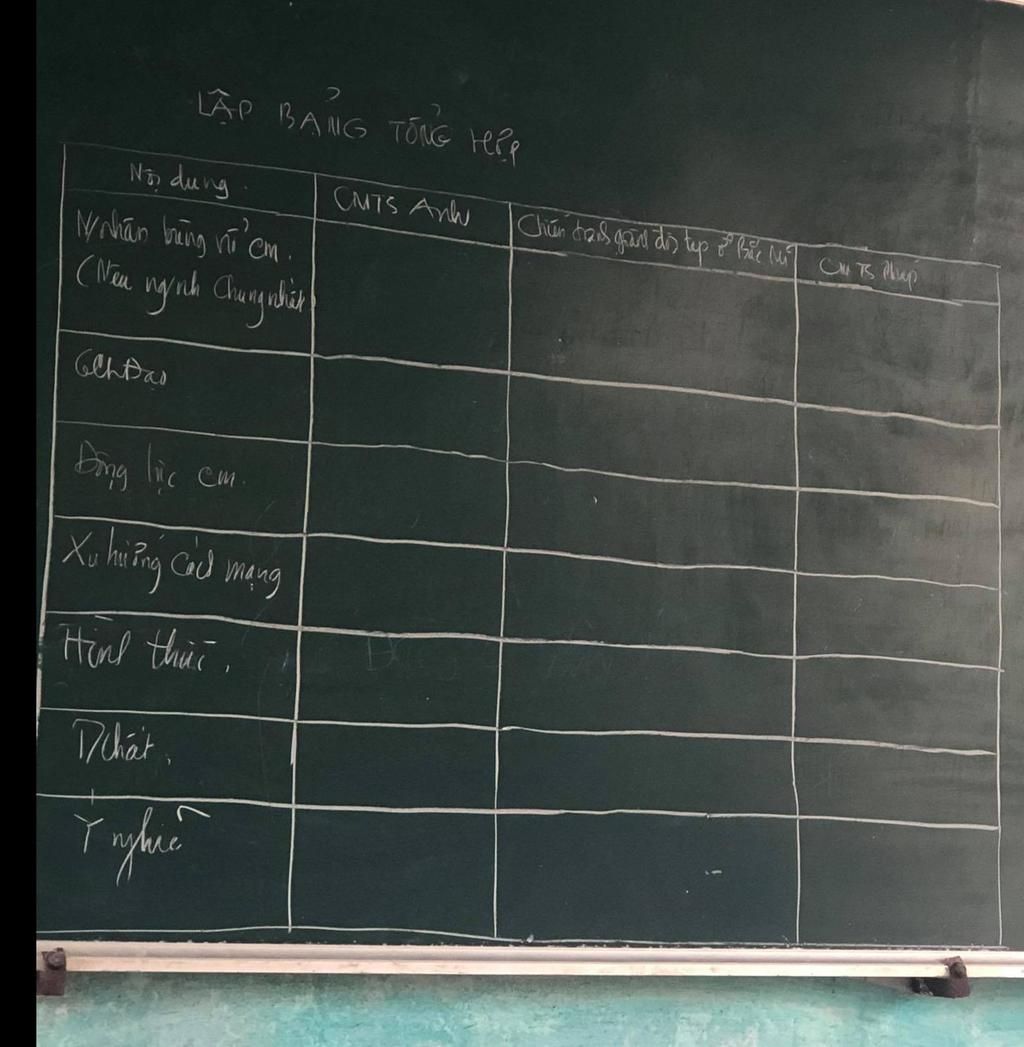 LẬP BẢNG TỔNG HỢP
Nội dung.
CMTS Anh
Chiến tranh giành độc lập ở Bắc Mĩ
CMTS Pháp
N/nhân bùng nổ cm.
(Nêu ng/nh Chung nhất
Động lực cm.
Xu hướng Cách mạng
Hình thức.
T/chất.
Ý nghĩa